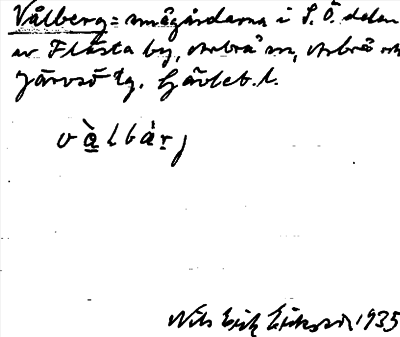 Vålberg = smågårdarna i S. Ö. delen
av Flästa by, Arbrå sn, Arbrå och
Järvsö tg. Gävleb. l.
v à̱ l b á r̠ j
Nils Erik Eriksson 1935